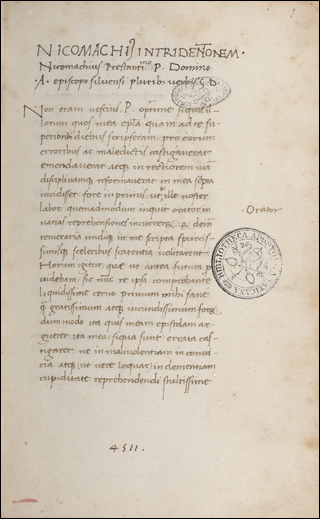 NICOMACHI IN TRIDENTONEM.
Nicomachius Prestantmo P. Domino
.A. episcopo silvensi pluribus verbis S. D.
Non eram nescius P. optime
lorum quos mea epła quam ad te su
perioribus diebus scripseram pro eorum
erroribus ac maledictis castigaverat
emendaverat atq in rectiorem viā
disciplinamq reformaverat in mea sepia
incidisset fore in primis ut ille noster
labor quemadmodum inquit orator in
varias reprehensiones incurreret & 
temeraria undiq in me scripta
sceleribus scatentia volitarent.
Horum igitur que ut antea futura p
videbam sic nūc re ipsa comprobante
liquidissime cerno primum mihi sane
q gratissimum atq iucundissimum foret
dum modo ita quis meam epistolam ar
gueret ita mea siqua sunt errata cas
tigaret ne in malivolentiam in convi
cia atq (ut vere loquar) in dementiam
cupiditate reprehendendi stultissime
.Orator
4511.